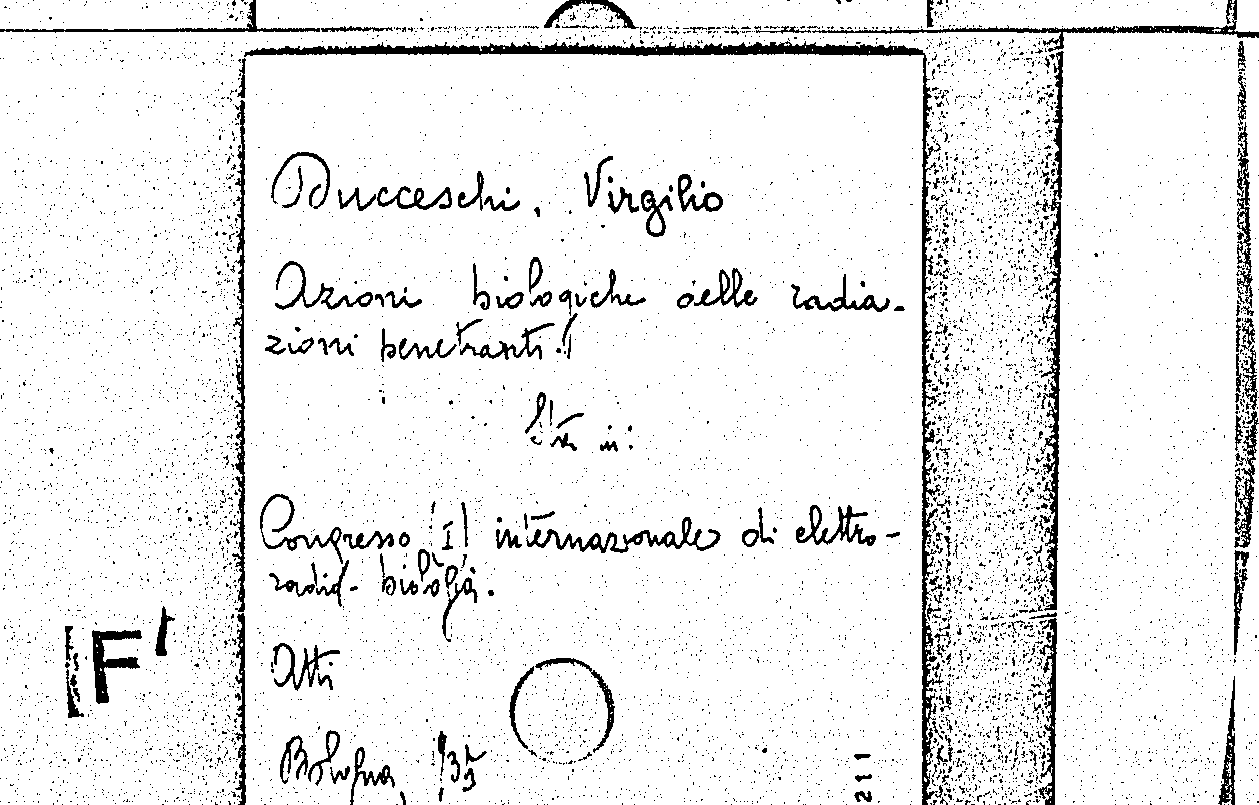 Ducceschi, Virgilio
Azioni biologiche delle radia-
zioni penetranti.
in:
Congresso (I) internazionale di elettro-
radio-biologia.
Atti
Bologna,
211
F